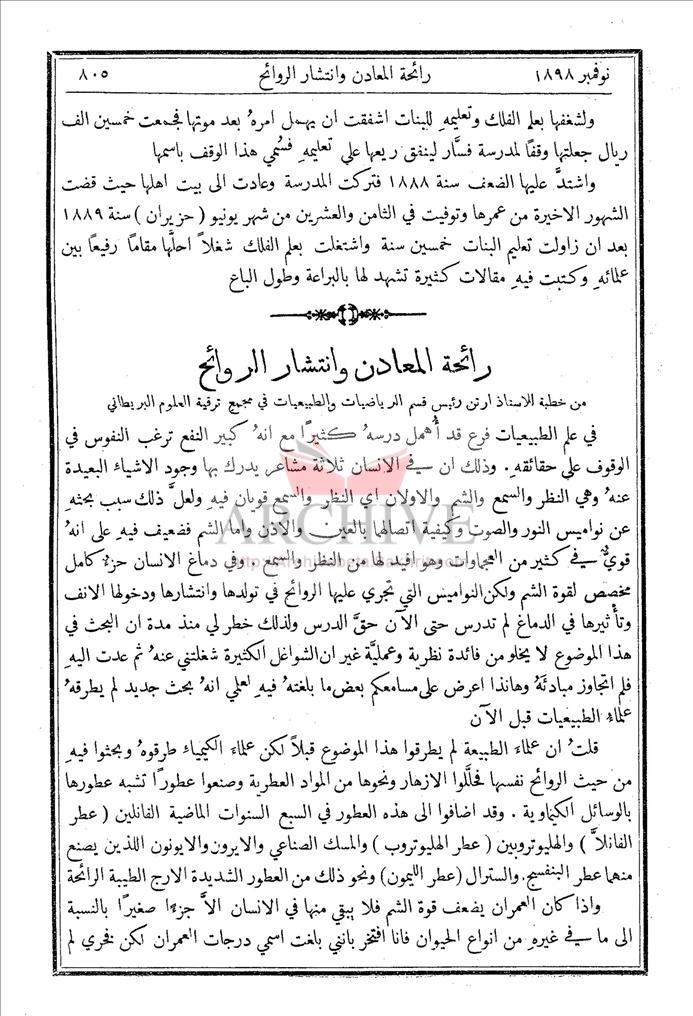 نوفمبر ١٨٩٨
رائحة المعادن وانتشار الروائح
٨٠٥
ولشغفها بعلم الفلك وتعليمهِ للبنات اشفقت ان يهمل امرهُ بعد موتها فجمعت خمسين الف
ريال جعلتها وقفاً لمدرسة فسَّار لينفق ريعها على تعليمهِ فسُمي هذا الوقف باسمها
واشتدَّ عليها الضعف سنة ١٨٨٨ فتركت المدرسة وعادت الى بيت اهلها حيث قضت
الشهور الاخيرة من عمرها وتوفيت في الثامن والعشرين من شهر يونيو ( حزيران ) سنة ١٨٨٩
بعد ان زاولت تعليم البنات خمسين سنة واشتغلت بعلم الفلك شغلاً احلَّها مقاماً رفيعاً بين
علمائهِ وكتبت فيهِ مقالات كثيرة تشهد لها بالبراعة وطول الباع
رائحة المعادن وانتشار الروائح
من خطبة للاستاذ ارتن رئيس قسم الرياضيات والطبيعيات في مجمع ترقية العلوم البريطاني
في علم الطبيعيات فرع قد أُهمل درسهُ كثيراً مع انهُ كبير النفع ترغب النفوس في
الوقوف على حقائقهِ . وذلك ان في الانسان ثلاثة مشاعر يدرك بها وجود الاشياء البعيدة
عنهُ وهي النظر والسمع والشم والاولان اي النظر والسمع قويان فيهِ ولعلَّ ذلك سبب بحثهِ
عن نواميس النور والصوت وكيفية اتصالها بالعين والاذن واما الشم فضعيف فيهِ على انهُ
قويٌّ في كثير من العجماوات وهو افيد لها من النظر والسمع . وفي دماغ الانسان جزء كامل
مخصص لقوة الشم ولكن النواميس التي تجري عليها الروائح في تولدها وانتشارها ودخولها الانف
وتأثيرها في الدماغ لم تدرس حتى الآن حقَّ الدرس ولذلك خطر لي منذ مدة ان البحث في
هذا الموضوع لا يخلو من فائدة نظرية وعمليَّة غير ان الشواغل الكثيرة شغلتني عنهُ ثم عدت اليهِ
فلم اتجاوز مبادئَهُ وهانذا اعرض على مسامعكم بعض ما بلغتهُ فيهِ لعلمي انهُ بحث جديد لم يطرقهُ
علماء الطبيعيات قبل الآن
قلتُ ان علماء الطبيعة لم يطرقوا هذا الموضوع قبلاً لكن علماء الكيمياء طرقوهُ وبحثوا فيهِ
من حيث الروائح نفسها فحلَّلوا الازهار ونحوها من المواد العطرية وصنعوا عطوراً تشبه عطورها
بالوسائل الكيماوية . وقد اضافوا الى هذه العطور في السبع السنوات الماضية الفانلين ( عطر
الفانلاَّ ) والهليوتروبين ( عطر الهليوتروب ) والمسك الصناعي والايرون والايونون اللذين يصنع
منهما عطر البنفسج. والسترال (عطر الليمون) ونحو ذلك من العطور الشديدة الارج الطيبة الرائحة
واذا كان العمران يضعف قوة الشم فلا يبقي منها في الانسان الاَّ جزءًا صغيراً بالنسبة
الى ما في غيرهِ من انواع الحيوان فانا افتخر بانني بلغت اسمى درجات العمران لكن فخري لم
ARCHIVE